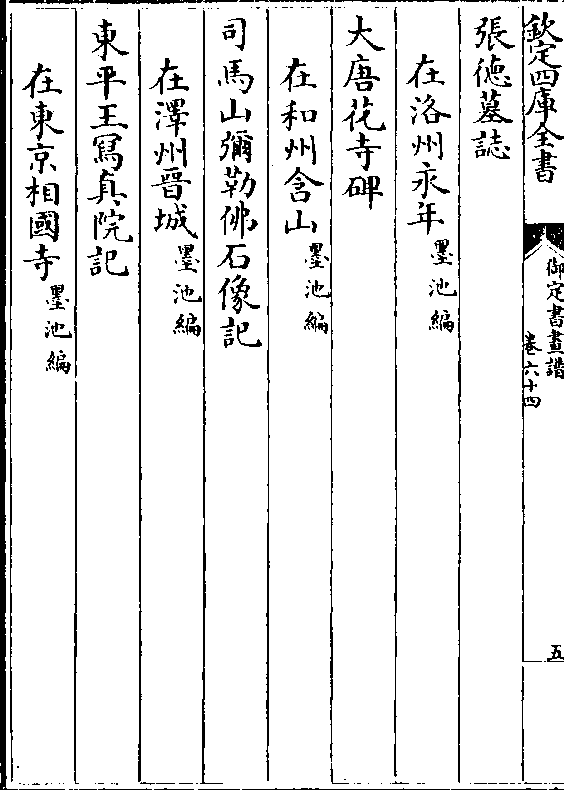 欽定四庫全書
御定書畫譜
卷六十四
五
張徳墓誌
在洛州永年墨池編
大唐花寺碑
在和州含山墨池編
司馬山彌勒佛石像記
在澤州晉城墨池編
東平王冩真院記
在東京相國寺墨池編